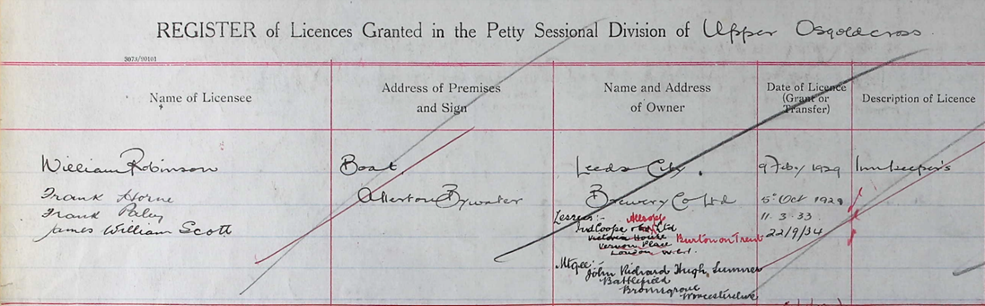 REGISTER of Licences Granted in the Petty Sessional Division of Upper Osgoldcross.
3073/90101
Name of Licensee
Address of Premises and Sign
Name and Address of Owner
Date of Licence (Grant or Transfer)
Description of Licence
William Robinson Boat Leeds City 9 Feby 1929 Innkeeper's
Frank Horne Allerton Bywater Brewery Co Ltd 5 Oct 1929
Frank Paley Lessees:- Allsopp 11.3.33
James William Scott Ind Coope & Co Ltd 22/9/34
Victoria House Burton on Trent
Vernon Place
London W.C.1.
Mtgee:- John Richard Hugh Sumner
Battlefield
Bromsgrove
Worcestershire